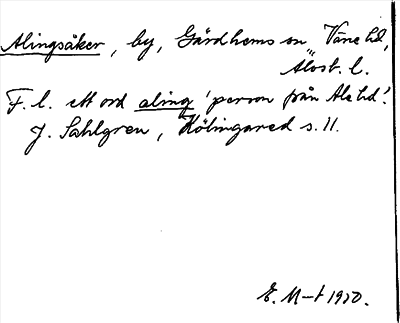 Alingsåker, by, Gärdhems sn, Väne hd,
Älvsb. l.
F. l. ett ord aling 'person från Ale hd'.
J. Sahlgren, Kölingared s. 11.
E. M-t 1950.